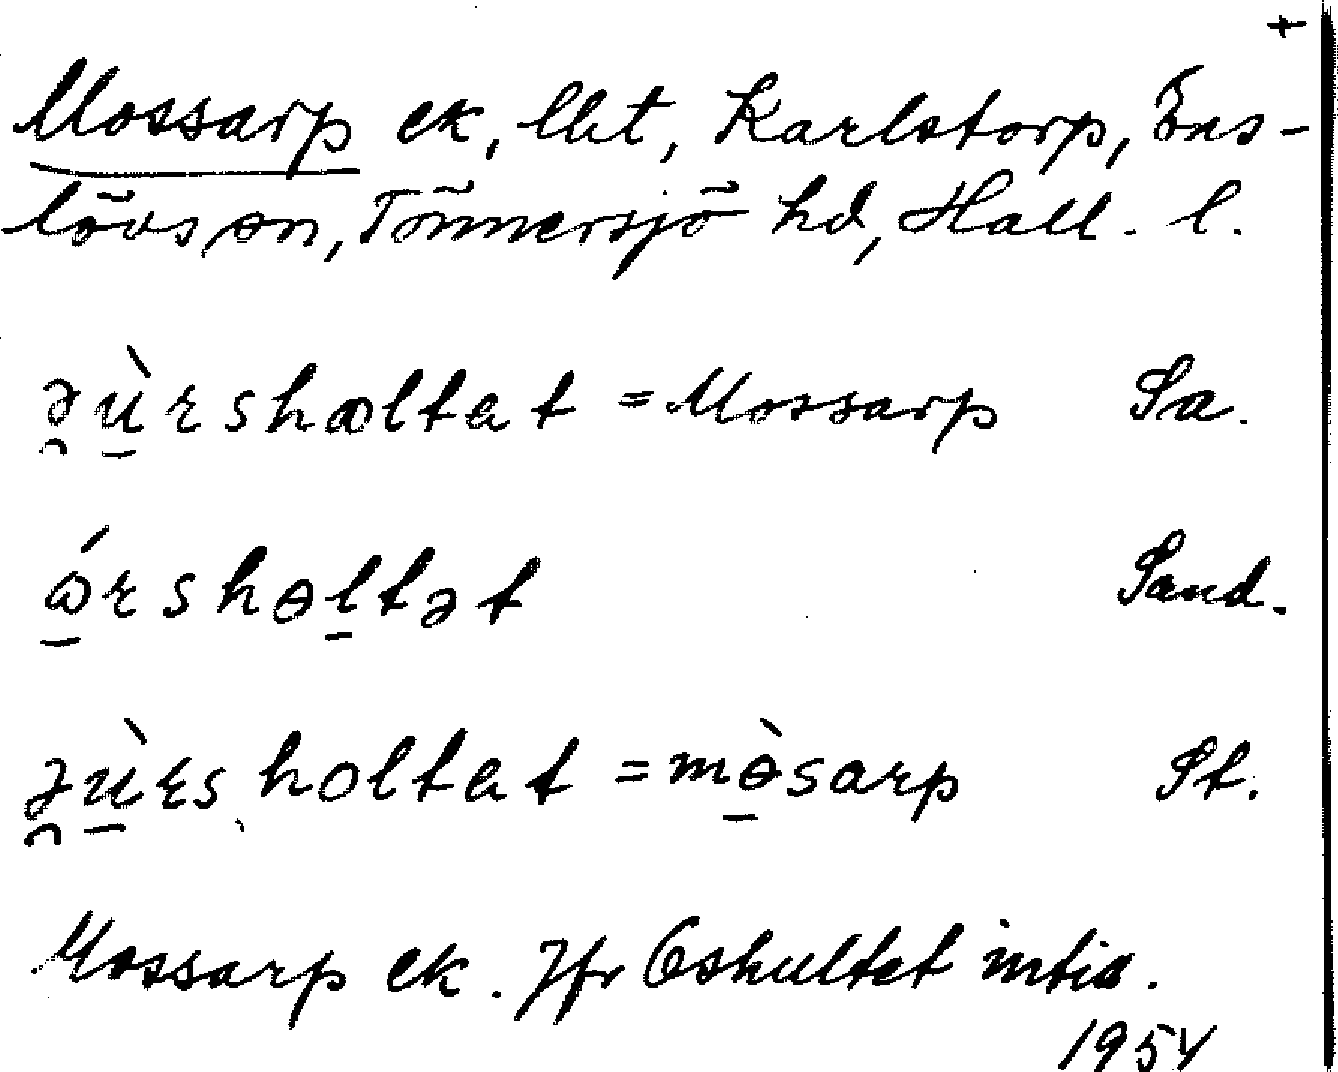 +
Mossarp ek, lht, Karlstorp, Ens-
lövs sn, Tönnersjö hd, Hall. l.
ə̯ù̱rshaltat = Mossarp Sa.
ώ̱rshɵḻtət Sand.
ə̯ù̱rsholtat = mɵ̱̀sarp St.
Mossarp ek. Jfr Oshultet intia.
1954